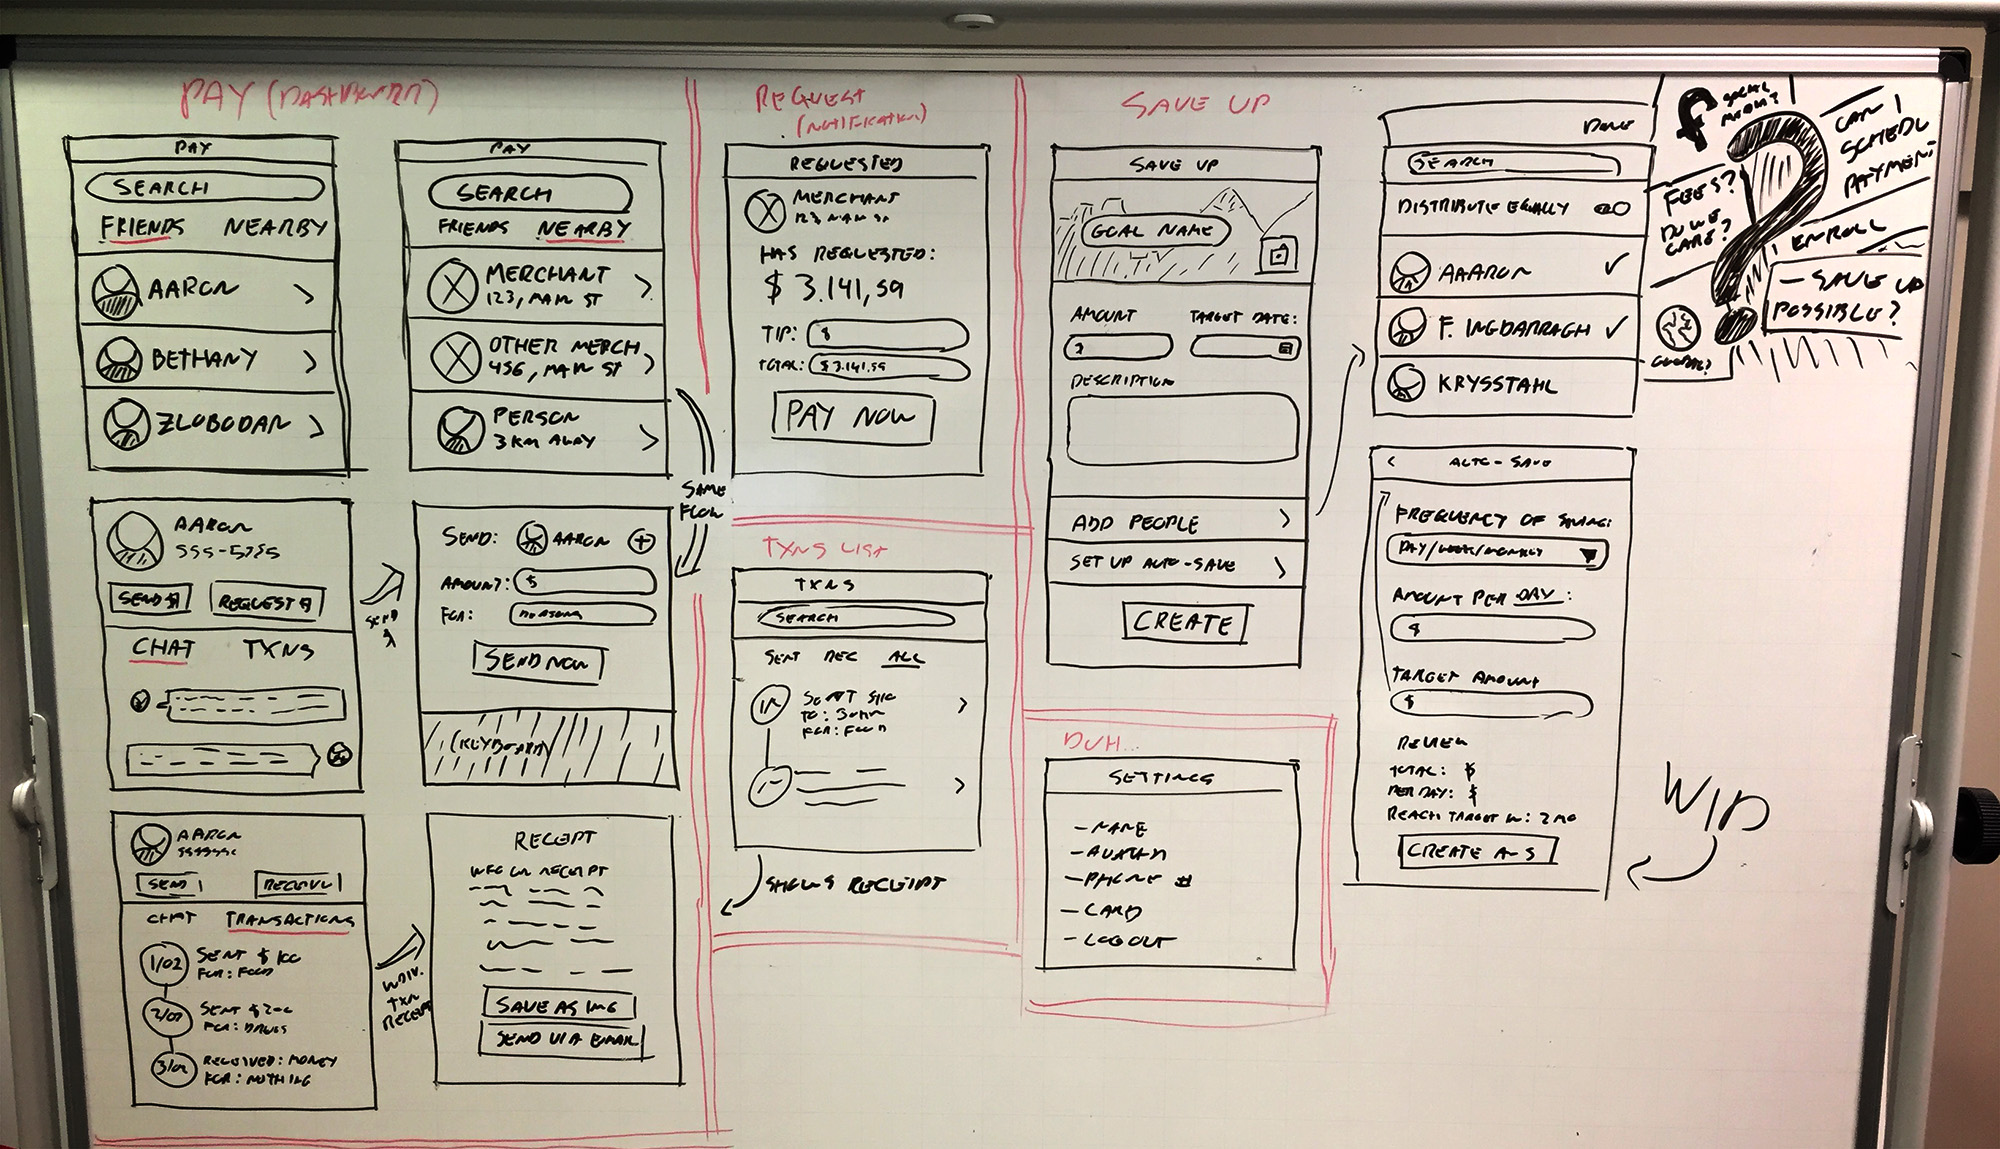 PAY (DASHBOARD)
PAY
SEARCH
FRIENDS NEARBY
AARON
BETHANY
ZLOBODAN
PAY
SEARCH
FRIENDS NEARBY
MERCHANT
123, MAIN ST
OTHER MERCH
456, MAIN ST
PERSON
3 KM AWAY
SAME
FLOW
AARON
555-5255
SEND $ REQUEST $
CHAT TXNS
SEND
$
SEND: AARON +
AMOUNT: $
FOR:
SEND NOW
(KEYBOARD)
AARON
SEND
CHAT TRANSACTIONS
1/02 SENT $100
FOR: FOOD
2/02 SENT $200
FOR: DRUGS
3/02 RECEIVED: MONEY
FOR: NOTHING
INDIV.
TXN
RECEIPT
RECEIPT
INFO ON RECEIPT
SAVE AS IMG
SEND VIA EMAIL
REQUEST
(NOTIFICATION)
REQUESTED
MERCHANT
123 MAIN ST
HAS REQUESTED:
$ 3.141,59
TIP: $
TOTAL: $3.141.59
PAY NOW
TXNS LIST
TXNS
SEARCH
SENT REC ALL
SENT $10
TO: JOHN
FOR: FOOD
SHOWS RECEIPT
SAVE UP
SAVE UP
GOAL NAME
AMOUNT TARGET DATE:
$
DESCRIPTION
ADD PEOPLE
SET UP AUTO-SAVE
CREATE
DUH...
SETTINGS
- NAME
- AVATAR
- PHONE #
- CARD
- LOGOUT
DONE
SEARCH
DISTRIBUTE EQUALLY
AAARON ✓
F. INGDARRAGH ✓
KRYSSTAHL
< AUTO-SAVE
FREQUENCY OF SAVING:
DAY/WEEK/MONTHLY
AMOUNT PER DAY:
$
TARGET AMOUNT
$
REVIEW
TOTAL: $
PER DAY: $
REACH TARGET IN: 2 MO
CREATE A-S
WIP
f SOCIAL
MEDIA?
?
CAN I
SCHEDL
PAYMENT
FEES?
DO WE
CARE?
ENROLL
- SAVE UP
POSSIBLE?
GLOBAL?